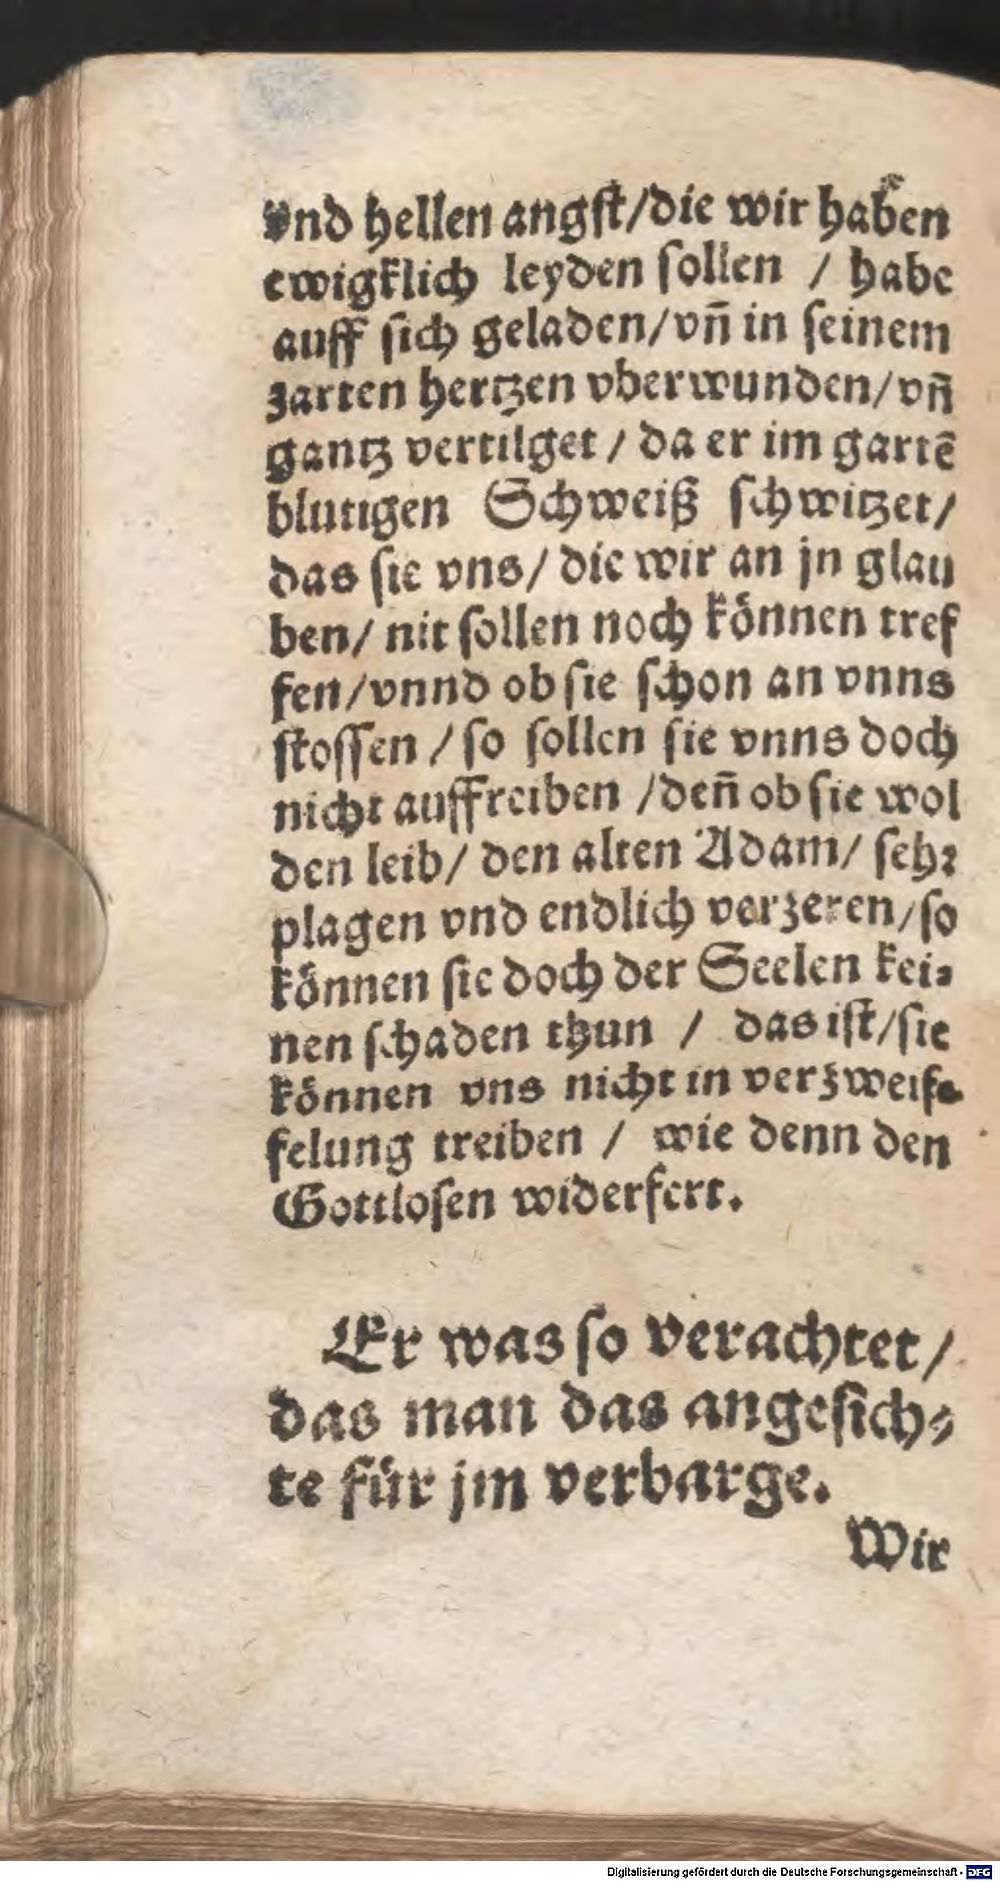 vnd hellen angſt/die wir haben
ewigklich leyden ſollen / habe
auff ſich geladen/vñ in ſeinem
zarten hertzen vberwunden/vñ
gantz vertilget / da er im gartē
blutigen Schweiß ſchwitzet/
das ſie vns/ die wir an jn glau
ben/ nit ſollen noch können tref
fen/vnnd ob ſie ſchon an vnns
ſtoſſen / ſo ſollen ſie vnns doch
nicht auffreiben /deñ ob ſie wol
den leib/ den alten Adam/ ſehꝛ
plagen vnd endlich verzeren/ſo
können ſie doch der Seelen kei⸗
nen ſchaden thun / das iſt/ſie
können vns nicht in verzweif⸗
felung treiben / wie denn den
Gottloſen widerfert.
Er was ſo verachtet/
das man das angeſich⸗
te für jm verbarge.
Wir
Digitalisierung gefördert durch die Deutsche Forschungsgemeinschaft - DFG